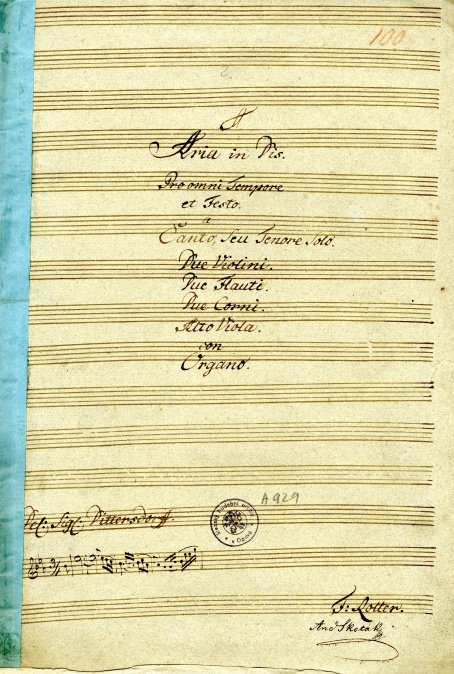 100
Aria in Dis.
Pro omni Tempore
et Festo.
a
Canto, seu Tenore Solo.
Due Violini.
Due Flauti.
Due Corni.
Alto Viola.
con
Organo.
A 929
Del: Sigl: Dittersdorff.
F: Rotter.